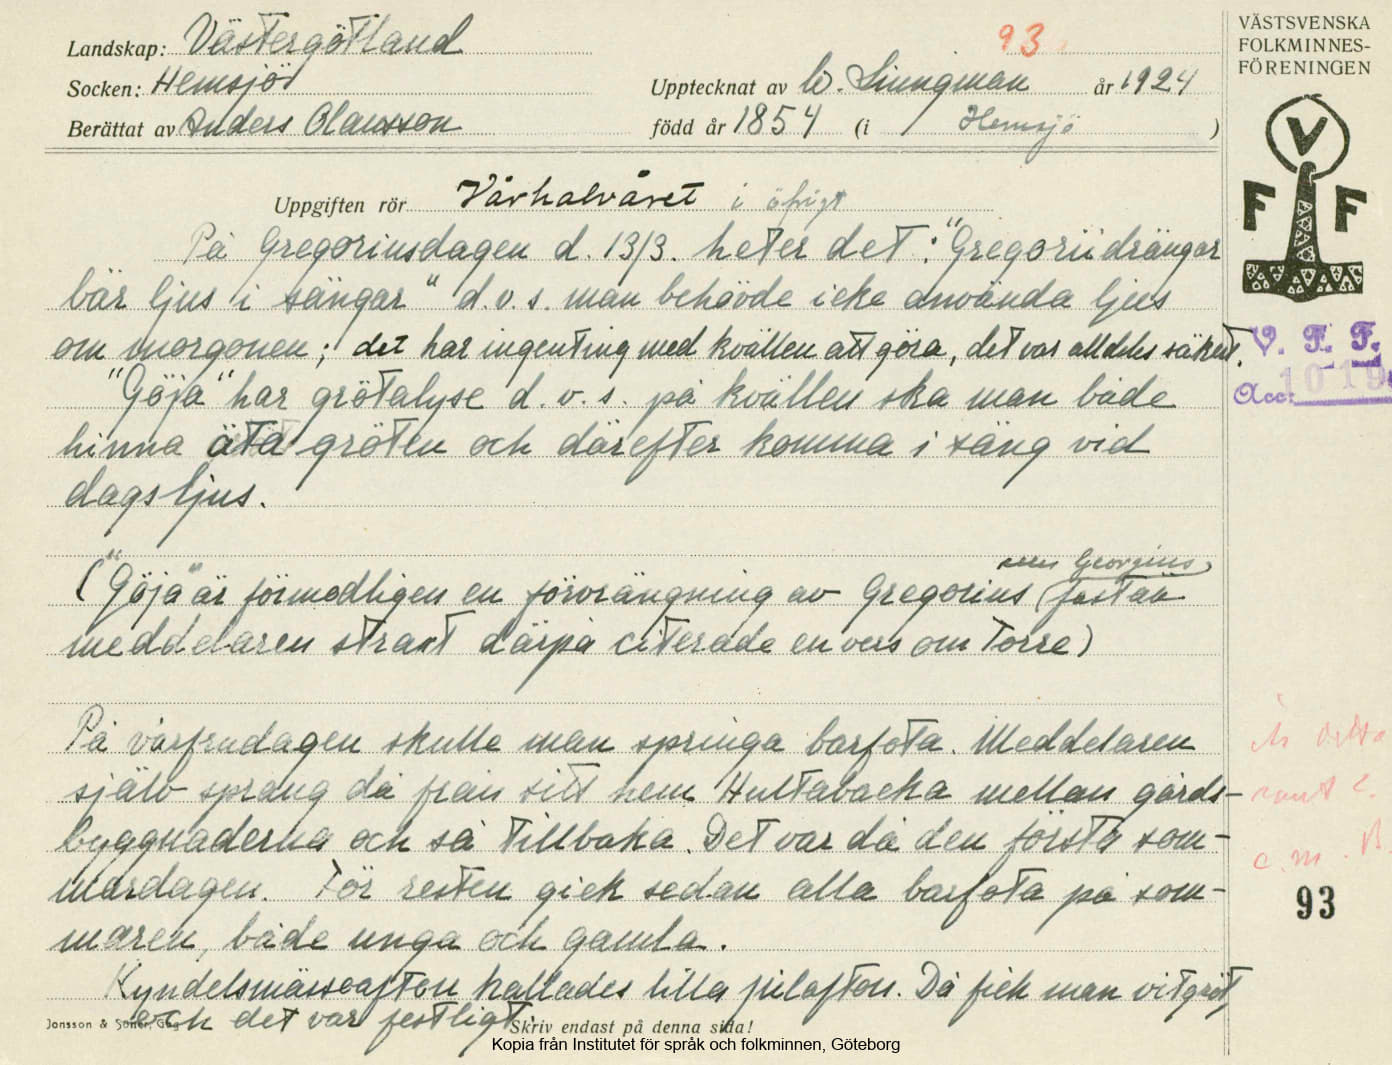 Landskap: Västergötland
Socken: Hemsjö
Berättat av Anders Olausson
93
Upptecknat av W. Liungman år 1924
född år 1854 (i Hemsjö )
VÄSTSVENSKA
FOLKMINNES-
FÖRENINGEN
V
F F
Uppgiften rör Vårhalvåret i öfrigt
På Gregoriusdagen d. 13/3. heter det: "Gregoriidrängar
bär ljus i sängar" d.v.s. man behövde icke använda ljus
om morgonen; det har ingenting med kvällen att göra, det var alldeles säkert.
"Göja" har grötalyse d.v.s. på kvällen ska man både
hinna äta gröten och därefter komma i säng vid
dagsljus.
V. F. F.
Acc: 1019
("Göja" är förmodligen en förvrängning av Gregorius (fastän
Georgius
meddelaren straxt därpå citerade en vers om Torre)
På vårfrudagen skulle man springa barfota. Meddelaren
själv sprang då från sitt hem Hultabacka mellan gårds-
byggnaderna och så tillbaka. Det var då den första som-
mardagen. För resten gick sedan alla barfota på som-
maren, både unga och gamla.
Kyndelsmässoafton kallades lilla julafton. Då fick man vitgröt
och det var festligt.
93
Jonsson & Söner, Gbg
Skriv endast på denna sida!
Kopia från Institutet för språk och folkminnen, Göteborg